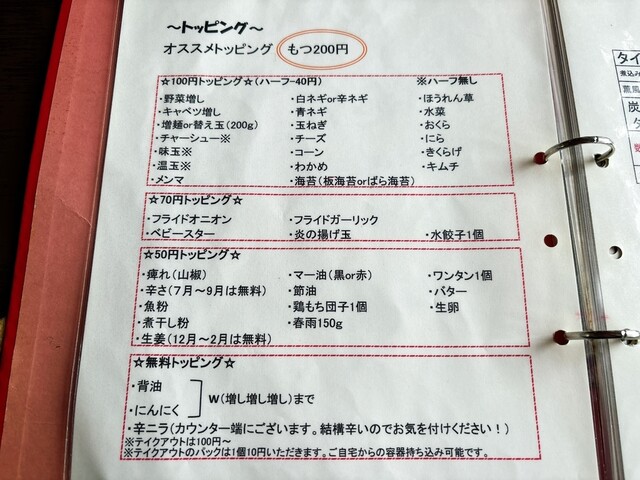 ～トッピング～
オススメトッピング　もつ200円
☆100円トッピング☆(ハーフ-40円)　※ハーフ無し
・野菜増し　・白ネギor辛ネギ　・ほうれん草
・キャベツ増し　・青ネギ　・水菜
・増麺or替え玉(200g)　・玉ねぎ　・おくら
・チャーシュー※　・チーズ　・にら
・味玉※　・コーン　・きくらげ
・温玉※　・わかめ　・キムチ
・メンマ　・海苔(板海苔orばら海苔)
☆70円トッピング☆
・フライドオニオン　・フライドガーリック
・ベビースター　・炎の揚げ玉　・水餃子1個
☆50円トッピング☆
・痺れ(山椒)　・マー油(黒or赤)　・ワンタン1個
・辛さ(7月～9月は無料)　・節油　・バター
・魚粉　・鶏もち団子1個　・生卵
・煮干し粉　・春雨150g
・生姜(12月～2月は無料)
☆無料トッピング☆
・背油
w(増し増し増し)まで
・にんにく
・辛ニラ(カウンター端にございます。結構辛いのでお気を付けください！)
※テイクアウトは100円～
※テイクアウトのパックは1個10円いただきます。ご自宅からの容器持ち込み可能です。
タイ
煮込み
炭